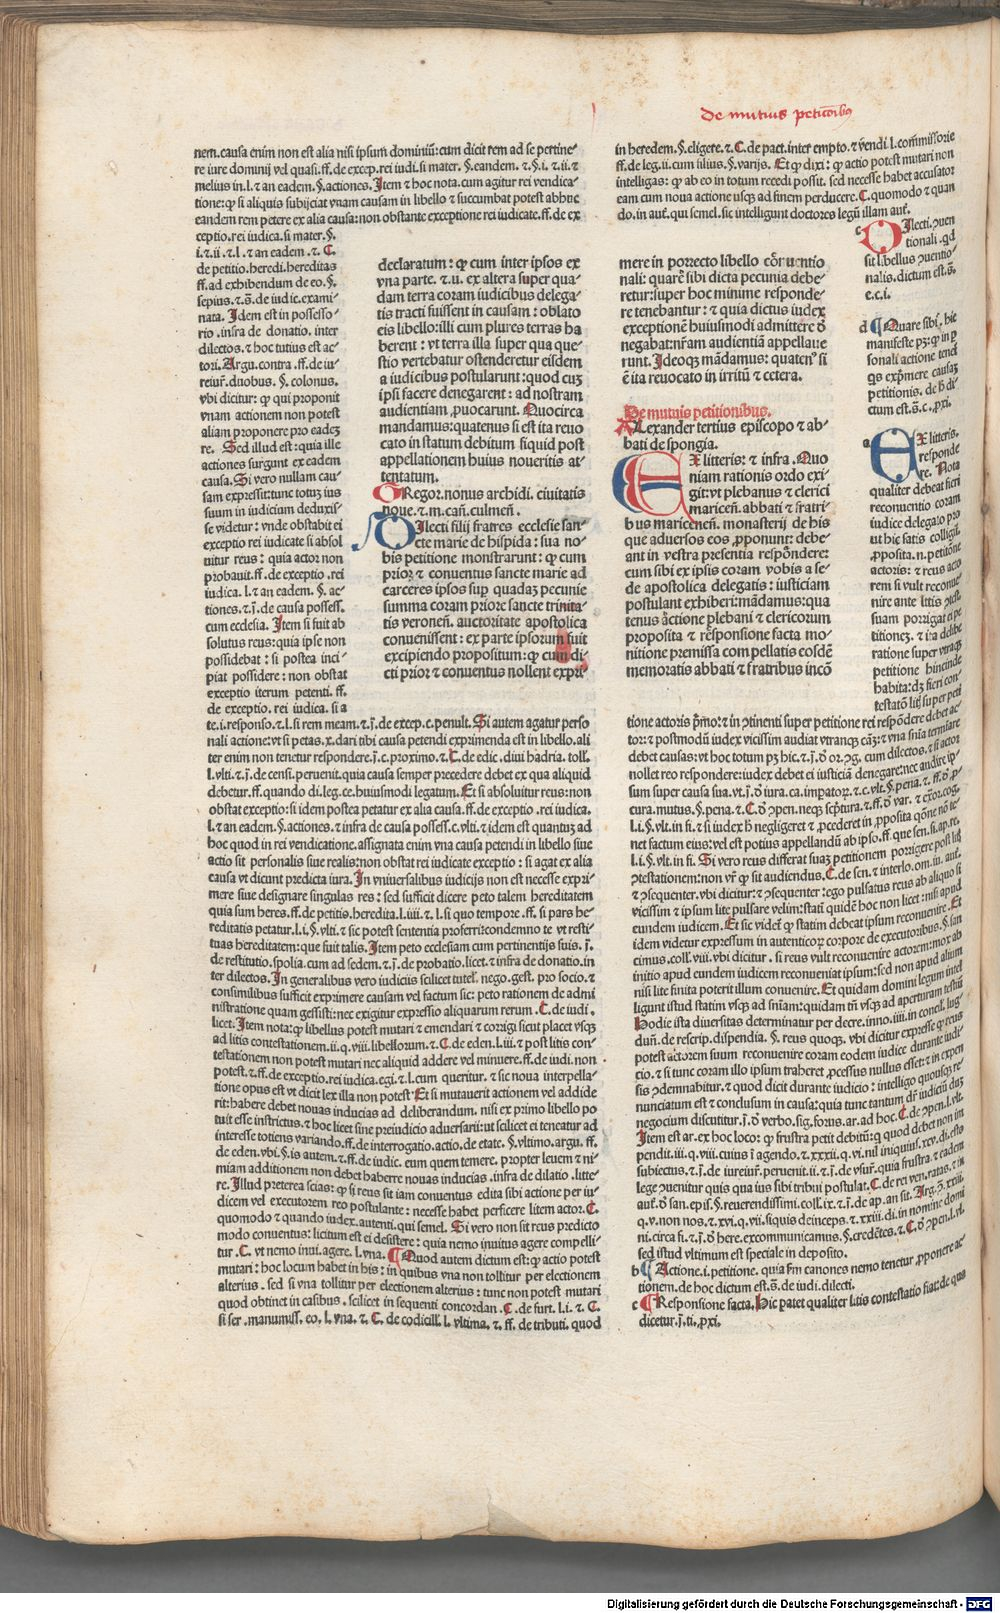 De mutuis peticionibus
nem.causa enim non est alia nisi ipsum dominiũ:cum dicit rem ad se pertine⸗
re iure dominij vel quasi.ff.de excep.rei iudi.si mater.§.eandem.⁊.§.i.⁊.ii.⁊
melius in.l.⁊ an eadem.§.actiones.Item ⁊ hoc nota.cum agitur rei vendica⸗
tione:ꝙ si aliquis subijciat vnam causam in libello ⁊ succumbat potest adhuc
eandem rem petere ex alia causa:non obstante exceptione rei iudicate.ff.de ex
ceptio.rei iudica.si mater.§.
i.⁊.ii.⁊.l.⁊ an eadem.⁊.C.
de petitio.heredi.hereditas
ff.ad exhibendum de eo.§.
sepius.⁊.s̃.de iudic.exami⸗
nata.Idem est in possesso⸗
rio.infra de donatio.inter
dilectos.⁊ hoc tutius est ac⸗
tori.Argu.contra.ff.de iu⸗
reiur̃.duobus.§.colonus.
vbi dicitur:ꝙ qui proponit
vnam actionem non potest
aliam proponere pro eadeꝫ
re. Sed illud est:quia ille
actiones surgunt ex eadem
causa.Si vero nullam cau⸗
sam expressit:tunc totuꝫ ius
suum in iudicium deduxis⸗
se videtur:vnde obstabit ei
exceptio rei iudicate si absol
uitur reus:quia actor non
probauit.ff.de exceptio.rei
iudica.l.⁊ an eadem.§.ac⸗
tiones.⁊.j̃.de causa possess.
cum ecclesia.Item si fuit ab
solutus reus:quia ipse non
possidebat:si postea inci⸗
piat possidere:non obstat
exceptio iterum petenti.ff.
de exceptio.rei iudica.si a
te.i.responso.⁊.l.si rem meam.⁊.j̃.de excep.c.penult.Si autem agatur perso
nali actione:vt si petas.x.dari tibi causa petendi exprimenda est in libello.ali
ter enim non tenetur respondere.j̃.c.proximo.⁊.C.de edic.diui hadria.toll.
l.vlti.⁊.j̃.de censi.peruenit.quia causa semper precedere debet ex qua aliquid
debetur.ff.quando di.leg.ce.huiusmodi legatum.Et si absoluitur reus:non
obstat exceptio:si idem postea petatur ex alia causa.ff.de exceptio.rei iudica.
l.⁊ an eadem.§.actiones.⁊ infra de causa possess.c.vlti.⁊ idem est quantuꝫ ad
hoc quod in rei vendicatione.assignata enim vna causa petendi in libello siue
actio sit personalis siue realis:non obstat rei iudicate exceptio:si agat ex alia
causa vt dicunt predicta iura.In vniuersalibus iudicijs non est necesse expri⸗
mere siue designare singulas res:sed sufficit dicere peto talem hereditatem
quia sum heres.ff.de petitis.heredita.l.iiii.⁊.l.si quo tempore.ff.si pars he⸗
reditatis petatur.l.i.§.vlti.⁊ sic potest sententia proferri:condemno te vt resti⸗
tuas hereditatem:que fuit talis.Item peto ecclesiam cum pertinentijs suis.j̃.
de restitutio.spolia.cum ad sedem.⁊.j̃.de probatio.licet.⁊ infra de donatio.in
ter dilectos.In generalibus vero iudiciis scilicet tutel̃.nego.gest.pro socio.⁊
consimilibus sufficit exprimere causam vel factum sic:peto rationem de admi
nistratione quam gessisti:nec exigitur expressio aliquarum rerum.C.de iudi.
licet.Item nota:ꝙ libellus potest mutari ⁊ emendari ⁊ corrigi sicut placet vsqꝫ
ad litis contestationem.ii.q.viii.libellorum.⁊.C.de eden.l.iii.⁊ post litis con⸗
testationem non potest mutari nec aliquid addere vel minuere.ff.de iudi.non
potest.⁊.ff.de exceptio.rei iudica.egi.⁊.l.cum queritur.⁊ sic noua interpella⸗
tione opus est vt dicit lex illa non potest.Et si mutauerit actionem vel addide
rit:habere debet nouas inducias ad deliberandum.nisi ex primo libello po
tuit esse instrictus.⁊ hoc licet sine preiudicio aduersarii:vt scilicet ei teneatur ad
interesse totiens variando.ff.de interrogatio.actio.de etate.§.vltimo.argu.ff.
de eden.vbi.§.is autem.⁊.ff.de iudic.eum quem temere.propter leuem ⁊ ni⸗
miam additionem non debet haberre nouas inducias.infra de dilatio.litte⸗
re.Illud preterea scias:ꝙ si reus sit iam conuentus edita sibi actione per iu⸗
dicem vel executorem reo postulante:necesse habet perficere litem actor.C.
quomodo ⁊ quando iudex.autenti.qui semel.Si vero non sit reus predicto
modo conuentus:licitum est ei desistere:quia nemo inuitus agere compelli⸗
tur.C.vt nemo inui.agere.l.vna.¶Quod autem dictum est:ꝙ actio potest
mutari:hoc locum habet in his:in quibus vna non tollitur per electionem
alterius.sed si vna tollitur per electionem alterius:tunc non potest mutari
quod obtinet in casibus.scilicet in sequenti concordan.C.de furt.l.i.⁊.C.
si ser.manumiss.eo.l.vna.⁊.C.de codicill.l.vltima.⁊.ff.de tributi.quod
declaratum:ꝙ cum inter ipsos ex
vna parte.⁊.u.ex altera super qua⸗
dam terra coram iudicibus delega⸗
tis tracti fuissent in causam:oblato
eis libello:illi cum plures terras ha
berent:vt terra illa super qua que⸗
stio vertebatur ostenderetur eisdem
a iudicibus postularunt:quod cuꝫ
ipsi facere denegarent:ad nostram
audientiam ꝓuocarunt.Quocirca
mandamus:quatenus si est ita reuo
cato in statum debitum siquid post
appellationem huius noueritis at⸗
tentatum.
GRegor.nonus archidi.ciuitatis
noue.⁊.m.can̄.culmen̄.
DIlecti filij fratres ecclesie san⸗
cte marie de hispida:sua no⸗
bis petitione monstrarunt:ꝙ cum
prior ⁊ conuentus sancte marie ad
carceres ipsos suꝑ quadaꝫ pecunie
summa coram priore sancte trinita⸗
tis veronen̄.auctoritate apostolica
conuenissent:ex parte ipsorum fuit
excipiendo propositum:ꝙ cum di⸗
cti prior ⁊ conuentus nollent expri⸗
in heredem.§.eligere.⁊.C.de pact.inter empto.⁊ vẽndi.l.commissorie
ff.de leg.ii.cum filius.§.varijs.Et ꝙ dixi:ꝙ actio potest mutari non
intelligas:ꝙ ab eo in totum recedi possit.sed necesse habet accusator
eam cum noua actione vsqꝫ ad finem perducere.C.quomodo ⁊ quan
do.in aut̃.qui semel.sic intelligunt doctores legũ illam aut̃.
mere in porrecto libello cõruentio
nali:quare sibi dicta pecunia debe⸗
retur:super hoc minime responde⸗
re tenebantur:⁊ quia dictus iudex
exceptionẽ huiusmodi admittere d̃
negabat:nr̃am audientiã appellaue
runt.Ideoqꝫ mãdamus:quatenꝰ si
ẽ ita reuocato in irritũ ⁊ cetera.
De mutuis petitionibus.
ALexander tertius episcopo ⁊ ab⸗
bati de spongia.
EX litteris:⁊ infra.Quo
niam rationis ordo exi⸗
git:vt plebanus ⁊ clerici
maricen̄.abbati ⁊ fratri⸗
bus maricenen̄.monasterij de his
que aduersos eos ꝓponunt:debe⸗
ant in vestra presentia respõdere:
cum sibi ex ipsis coram vobis a se⸗
de apostolica delegatis:iusticiam
postulant exhiberi:mãdamus:qua
tenus ãctione plebani ⁊ clericorum
proposita ⁊ rẽsponsione facta mo⸗
nitione premissa compellatis eosdẽ
memoratis abbati ⁊ fratribus incõ
c DIlecti.ↄuen
tionali.qd
sit libellus ↄuentio⸗
nalis.dictum est.s̃.
e.c.i.
d ¶Quare sibi.hic
manifeste pꝫ:ꝙ in ꝑ
sonali actione tenet̃
qs exp̃mere causaꝫ
petitionis.de h̃ di⸗
ctum est.s̃.c.ꝓxi.
a EX litteris.
responde
re.Nota
qualiter debeat fieri
reconuentio coram
iudice delegato pro
ut hic satis colligit̃.
ꝓposita.n.petitiõe
actoris:⁊ reus acto
rem si vult reconue⸗
nire ante litis ↄtest.
suam porrigat ei pe
titioneꝫ.⁊ ita delibe
ratione super vtraqꝫ
petitione hincinde
habita:dꝫ fieri con⸗
testatõ litꝭ super peti
tione actoris p̃mo:⁊ in ↄtinenti super petitione rei respõdere debet ac⸗
tor:⁊ postmodũ iudex vicissim audiat vtranqꝫ cãꝫ:⁊ vna sñia terminare
debet causas:vt hoc totum pꝫ hic.⁊.j̃.d̃ or.ↄg.cum dilectos.⁊ si actor
nollet reo respondere:iudex debet ei iusticiã denegare:nec audire ip⸗
sum super causa sua.vt.j̃.d̃ iura.ca.imp̃atoꝝ.⁊.c.vlt.§.pena.⁊.ff.d̃.ꝓ⸗
cura.mutus.§.pena.⁊.C.d̃ ↄpen.neqꝫ sc̃ptura.⁊.ff.d̃ var.⁊ ex̃or.cog.
l.i.§.vlt.in fi.⁊ si iudex h̃ negligeret ⁊ ꝓcederet in ꝓposita qõne nõ te⸗
net factum eius:vel est potius appellandũ ab ipso.ff.que sen.si.ap.re.
l.i.§.vlt.in fi.Si vero reus differat suaꝫ petitionem porrigere post litꝭ
ↄtestationem:non vr̃ ꝙ sit audiendus.C.de sen.⁊ interlo.om.iu.aut̃.
⁊ ↄsequenter.vbi dicitur:⁊ ↄsequenter:ego pulsatus reus ab aliquo si
vicissim ⁊ ipsum lite pulsare velim:statĩ quidẽ hoc non licet:nisi apud
eundem iudicem.Et sic videt̃ ꝙ statim debeat ipsum reconuenire.Et
idem videtur expressum in autenticoꝝ corpore de executoribus.§.san
cimus.coll.viii.vbi dicitur.si reus vult reconuenire actorem:mox ab
initio apud eundem iudicem reconueniat ipsum:sed non apud alium
nisi lite finita poterit illum conuenire.Et quidam domini legum intel
ligunt istud statim vsqꝫ ad sñiam:quidam tñ vsqꝫ ad aperturam testiũ
Hodie ista diuersitas determinatur per decre.inno.iiii.in concil.lug⸗
dun̄.de rescrip.dispendia.§.reus quoqꝫ.vbi dicitur expresse ꝙ reus
potest actorem suum reconuenire coram eodem iudice durante iudi⸗
cio.⁊ si tunc coram illo ipsum traheret ꝓcessus nullus esset:⁊ in expen
sis ↄdemnabitur.⁊ quod dicit durante iudicio:intelligo quousqꝫ re⸗
nunciatum est ⁊ conclusum in causa:quia tunc tantum dr̃ iudiciũ duꝫ
negocium discutitur.j̃.d̃ verbo.sig.forus.ar.ad hoc.C.de ↄpen.l.vlt.
Item est ar.ex hoc loco:ꝙ frustra petit debitũ:q quod debet non im
pendit.iii.q.viii.cuius ĩ agendo.⁊.xxxii.q.vi.nil iniquius.xcv.di.esto
subiectus.⁊.j̃.de iureiur̃.peruenit.ii.⁊.j̃.de vsur̃.quia frustra.⁊ eadem
lege ↄuenitur quis qua ius sibi tribui postulat.C.de rei ven.ratas.⁊ in
aut̃.d̃ san.epis.§.reuerendissimi.coll.ix.⁊.j̃.de ap.an sit.Arg.ↄ̃.xxiii.
q.v.non nos.⁊.xvi.q.vii.siquis deinceps.⁊.xxiii.di.in nomine domi
ni.circa fi.⁊.j̃.d̃ here.excommunicamus.§.credẽtes.⁊.C.d̃ ↄpen.l.vl.
sed istud vltimum est speciale in deposito.
b ¶Actione.i.petitione.quia scd̃m canones nemo tenetur.ꝓponere ac⸗
tionem.de hoc dictum est.s̃.de iudi.dilecti.
c ¶Responsione facta.Hic patet qualiter litis contestatio fiat:de qua
dicetur.j̃.ti.ꝓxi.
Digitalisierung gefördert durch die Deutsche Forschungsgemeinschaft - DFG